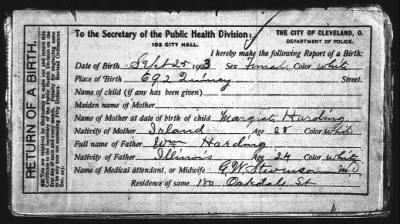 To the Secretary of the Public Health Division:
102 CITY HALL.
THE CITY OF CLEVELAND, O.
DEPARTMENT OF POLICE.
I hereby make the following Report of a Birth.
Date of Birth Sept 25 1903 Sex Female Color white
Place of Birth 692 Quincy Street.
Name of child (if any has been given)
Maiden name of Mother
Name of Mother at date of child's birth Margrate Harding
Nativity of Mother Ireland Age 28 Color white
Full name of Father Wm Harding
Nativity of Father Illinois Age 24 Color white
Name of Medical attendant, or Midwife G. W. Stevenson M D
Residence of same 180 Oakdale St
RETURN OF A BIRTH.